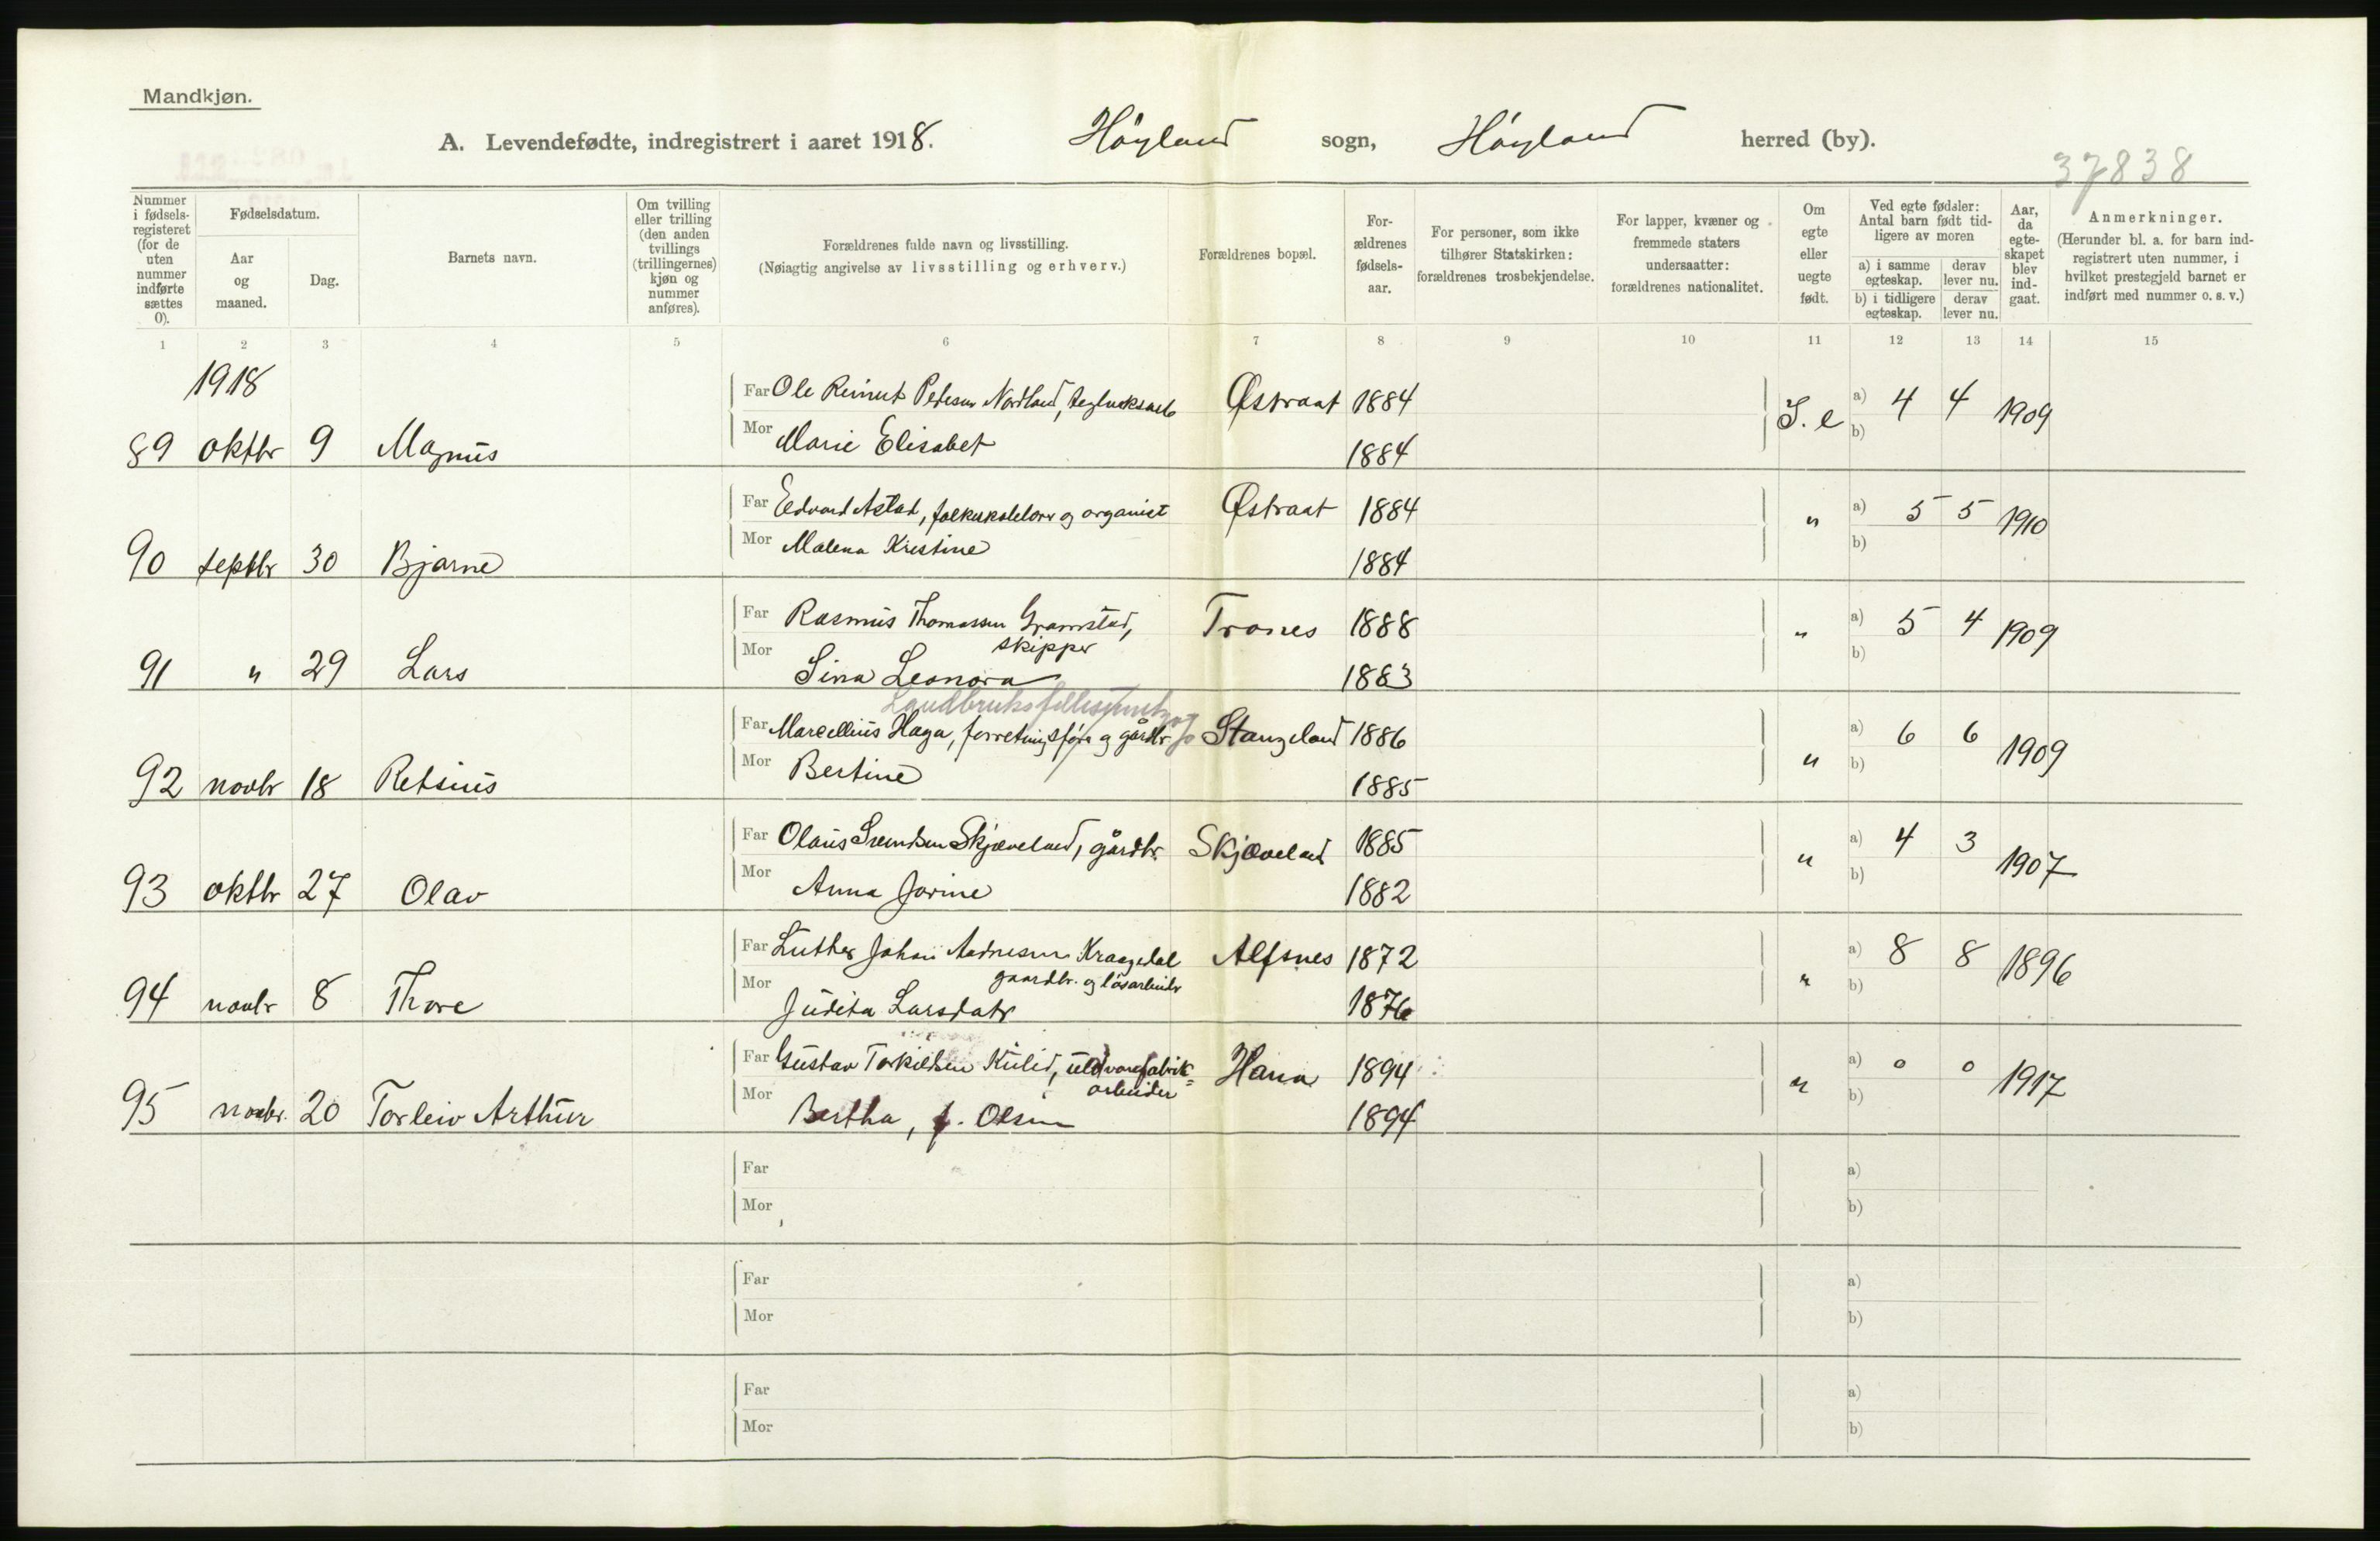 Mandkjøn.
A. Levendefødte, indregistrert i aaret 1918. Höyland sogn, Höyland herred (by).
37838
Nummer i fødsels-registeret (for de uten nummer indførte sættes 0).
Fødselsdatum.
Aar og maaned.
Dag.
Barnets navn.
Om tvilling eller trilling (den anden tvillings (trillingernes) kjøn og nummer anføres).
Forældrenes fulde navn og livsstilling.
(Nøiagtig angivelse av livsstilling og erhverv.)
Forældrenes bopæl.
For-ældrenes fødsels-aar.
For personer, som ikke tilhører Statskirken: forældrenes trosbekjendelse.
For lapper, kvæner og fremmede staters undersaatter: forældrenes nationalitet.
Om egte eller uegte født.
Ved egte fødsler: Antal barn født tid-ligere av moren
a) i samme egteskap. derav lever nu.
b) i tidligere egteskap. derav lever nu.
Aar, da egte-skapet blev ind-gaat.
Anmerkninger.
(Herunder bl. a. for barn ind-registrert uten nummer, i hvilket prestegjeld barnet er indført med nummer o. s. v.)
1 2 3 4 5 6 7 8 9 10 11 12 13 14 15
1918
Far Ole Reinert Petersen Nordland, Østraat 1884 S. e a) 4 4 1909
89 oktbr 9 Magnus Mor Marie Elisabet 1884 b)
Far Edvard Astad, folkeskolelærer og organist Østraat 1884 " a) 5 5 1910
90 septbr 30 Bjarne Mor Malena Kristine 1884 b)
Far Rasmus Thomassen Gramstad, Trones 1888 " a) 5 4 1909
skipper
91 " 29 Lars Mor Sina Leonora 1883 b)
Far Marcellius Haga, forretningsförer og gårdbr Stangeland 1886 " a) 6 6 1909
92 novbr 18 Retsius Mor Bertine 1885 b)
Far Olaus Svendsen Skjæveland, gårdbr. Skjæveland 1885 " a) 4 3 1907
93 oktbr 27 Olav Mor Anna Jorine 1882 b)
Far Luther Johan Andreasen Kraagedal Alfsnes 1872 " a) 8 8 1896
gaardbr. og lösarbeider
94 novbr 8 Thore Mor Judita Larsdatr 1876 b)
Far Gustav Torkildsen Kulid, uldvarefabrik= Hana 1894 " a) 0 0 1917
arbeider
95 novbr. 20 Torleiv Arthur Mor Bertha, f. Olsen 1894 b)
Far a)
Mor b)
Far a)
Mor b)
Far a)
Mor b)